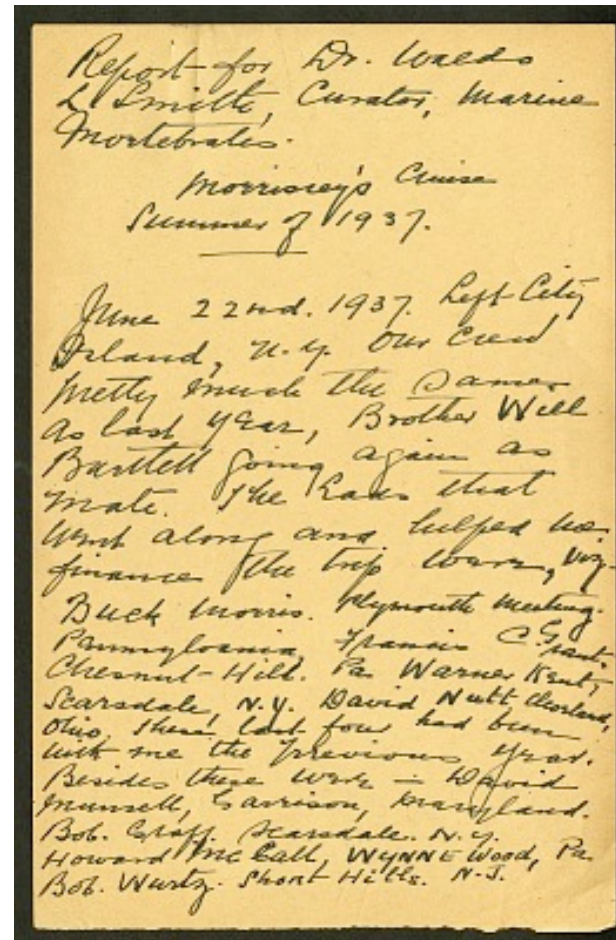 Report for Dr. Waldo
L Smith, Curator, Marine
Invertebrates.
Morrissey's Cruise
Summer of 1937.
June 22nd. 1937. Left City
Island, N.Y. Our Crew
pretty much the same
as last year, Brother Will
Bartlett going again as
mate. The Lads that
went along and helped us
finance the trip were, viz-
Buck Morris. Plymouth Meeting.
Pennsylvania, Francis C. Grant.
Chesnut-Hill. Pa. Warner Kent,
Scarsdale, N.Y. David Nutt, Cleveland,
Ohio, these last four had been
with me the previous year.
Besides these were - David
Munsell, Garrison, Maryland.
Bob. Scarsdale. N.Y.
Howard McCall, WYNNEWood, Pa.
Bob. Wurtz. Short Hills. N.J.